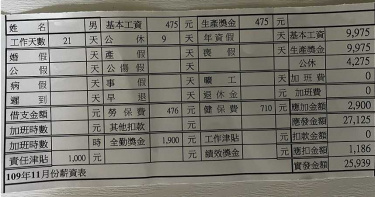 姓名 男 基本工資 475 元 生產獎金 475 元
工作天數 21 天 公休 9 天 年資假 天 基本工資 9,975
婚假 天 產假 天 喪假 天 生產獎金 9,975
公假 天 公傷假 天 公休 4,275
病假 天 事假 天 職工 天 加班費 0
遲到 天 早退 天 退休金 元 加班費 0
借支金額 元 勞保費 476 元 健保費 710 元 應加金額 2,900
加班時數 時 其他扣款 元 應發金額 27,125
加班時數 時 全勤獎金 1,900 元 工作津貼 元 扣款金額 0
責任津貼 1,000 元 元 績效獎金 元 應扣金額 1,186
109年11月份薪資表 實發金額 25,939